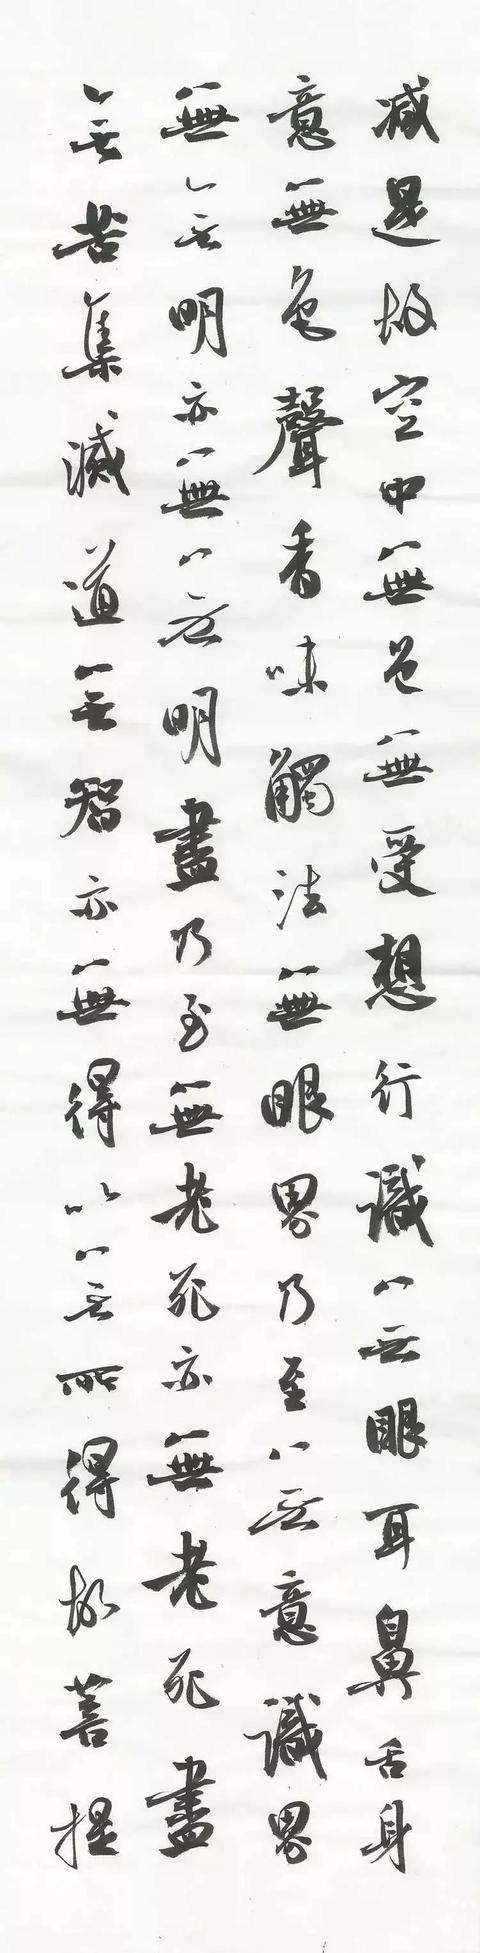 减是故空中無色無受想行識無眼耳鼻舌身
意無色聲香味觸法無眼界乃至無意識界
無無明亦無無明盡乃至無老死亦無老死盡
無苦集滅道無智亦無得以無所得故菩提